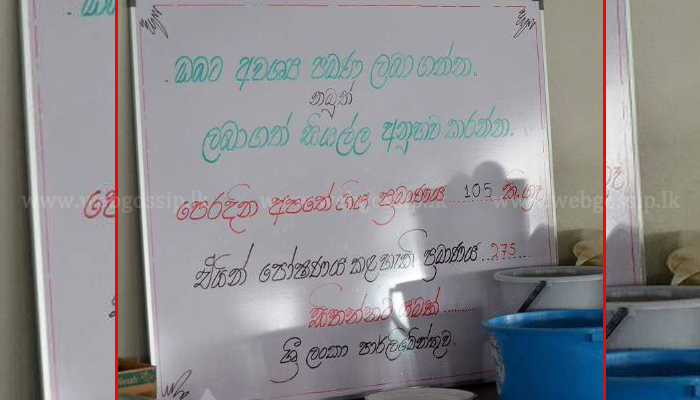 ඔබට අවශ්‍ය පමණ ලබාගන්න.
නමුත්
ලබාගත් සියල්ල අනුභව කරන්න.
පෙරදින අපතේ ගිය ප්‍රමාණය 105 කි.ග්‍රෑ
එයින් පෝෂණය කළ හැකි ප්‍රමාණය 275
සිතන්නට යමක්
ශ්‍රී ලංකා පාර්ලිමේන්තුව.
www.webgossip.lk